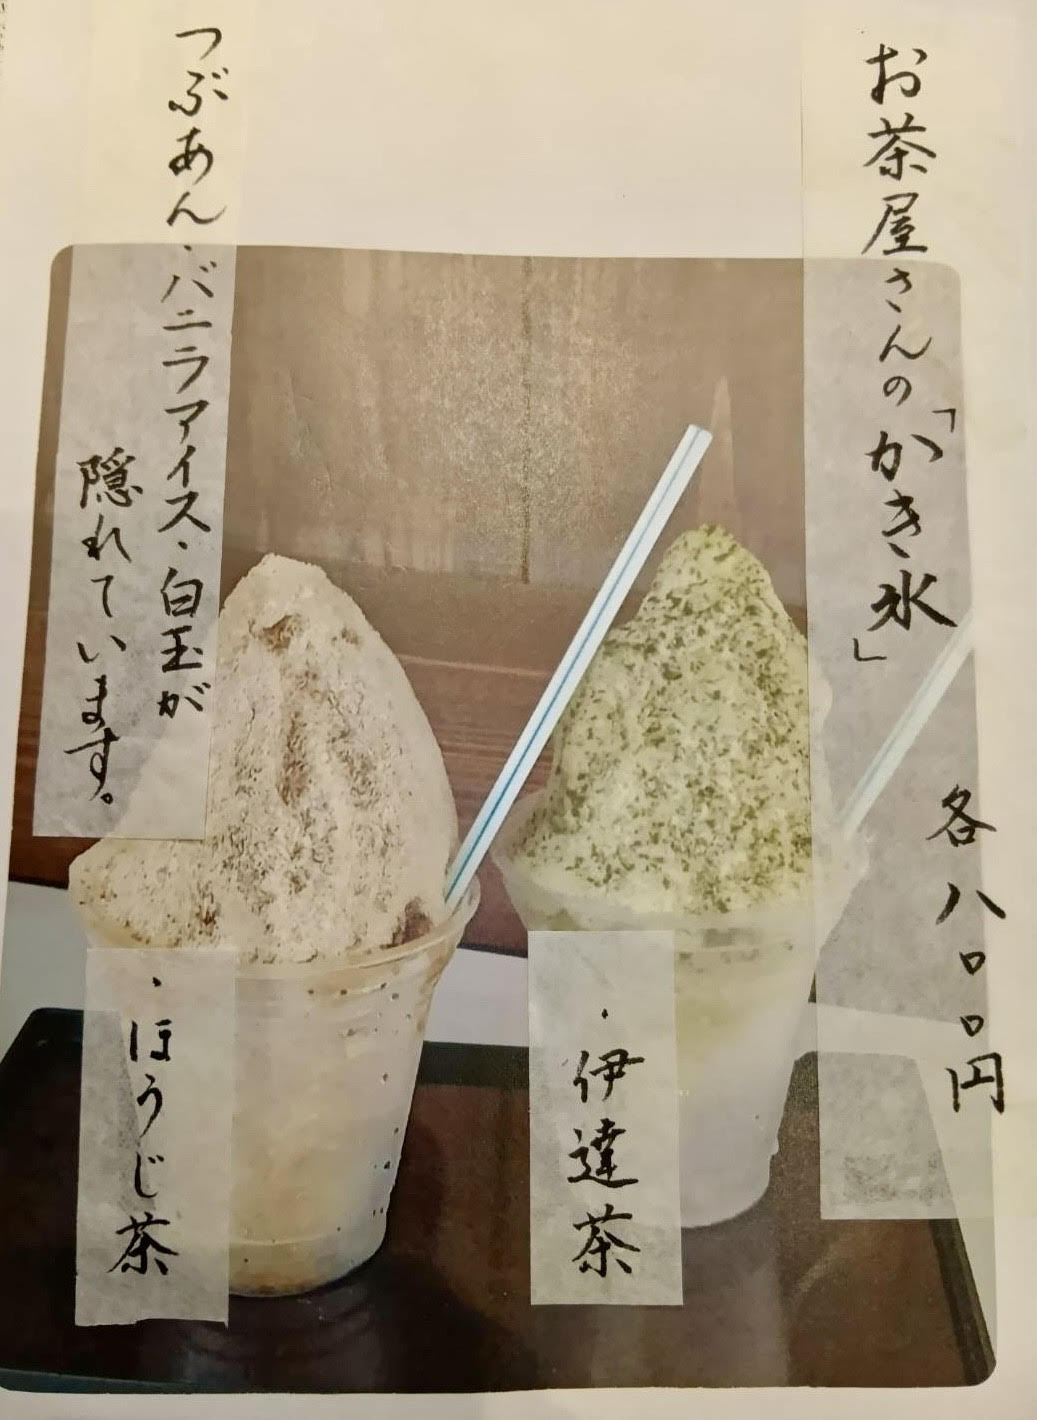 お茶屋さんの「かき氷」
各八〇〇円
つぶあん・バニラアイス・白玉が
隠れています。
・伊達茶
・ほうじ茶